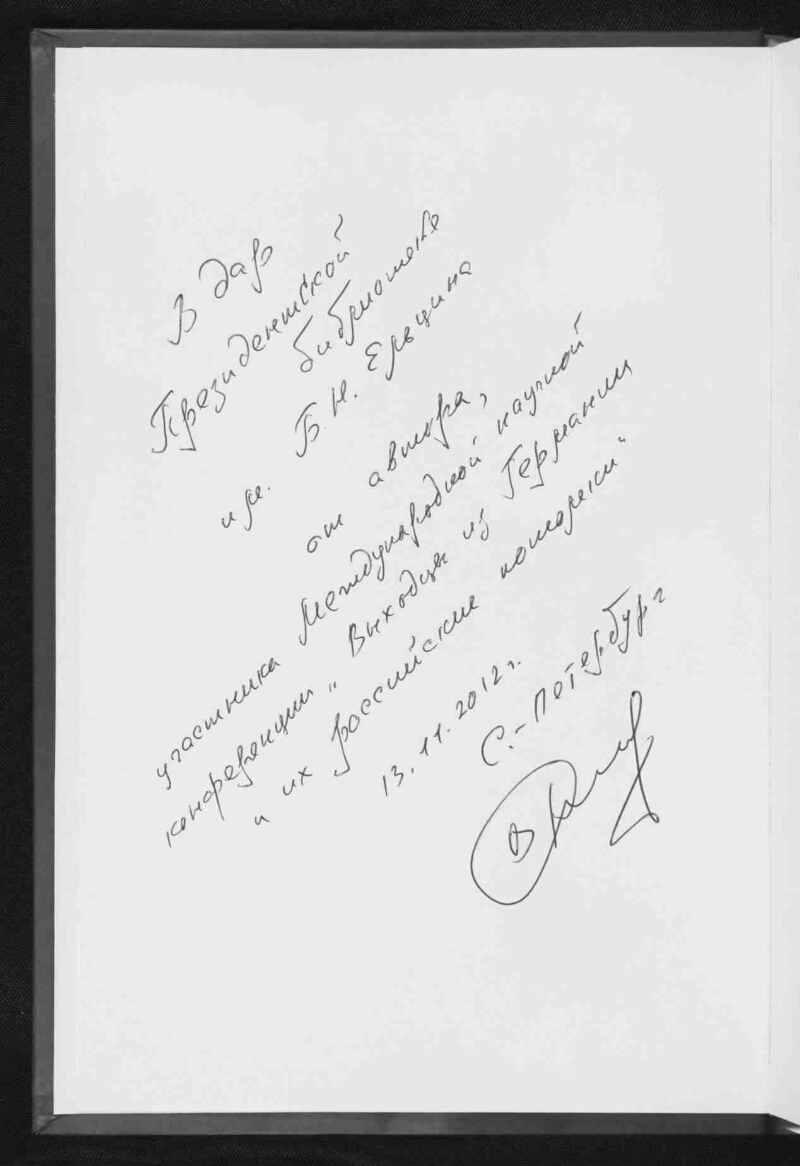 В дар
Президентской
библиотеке
им. Б. Н. Ельцина
от автора,
участника Международной научной
конференции „Выходцы из Германии
и их российские потомки“
13.11.2012 г.
С.-Петербург